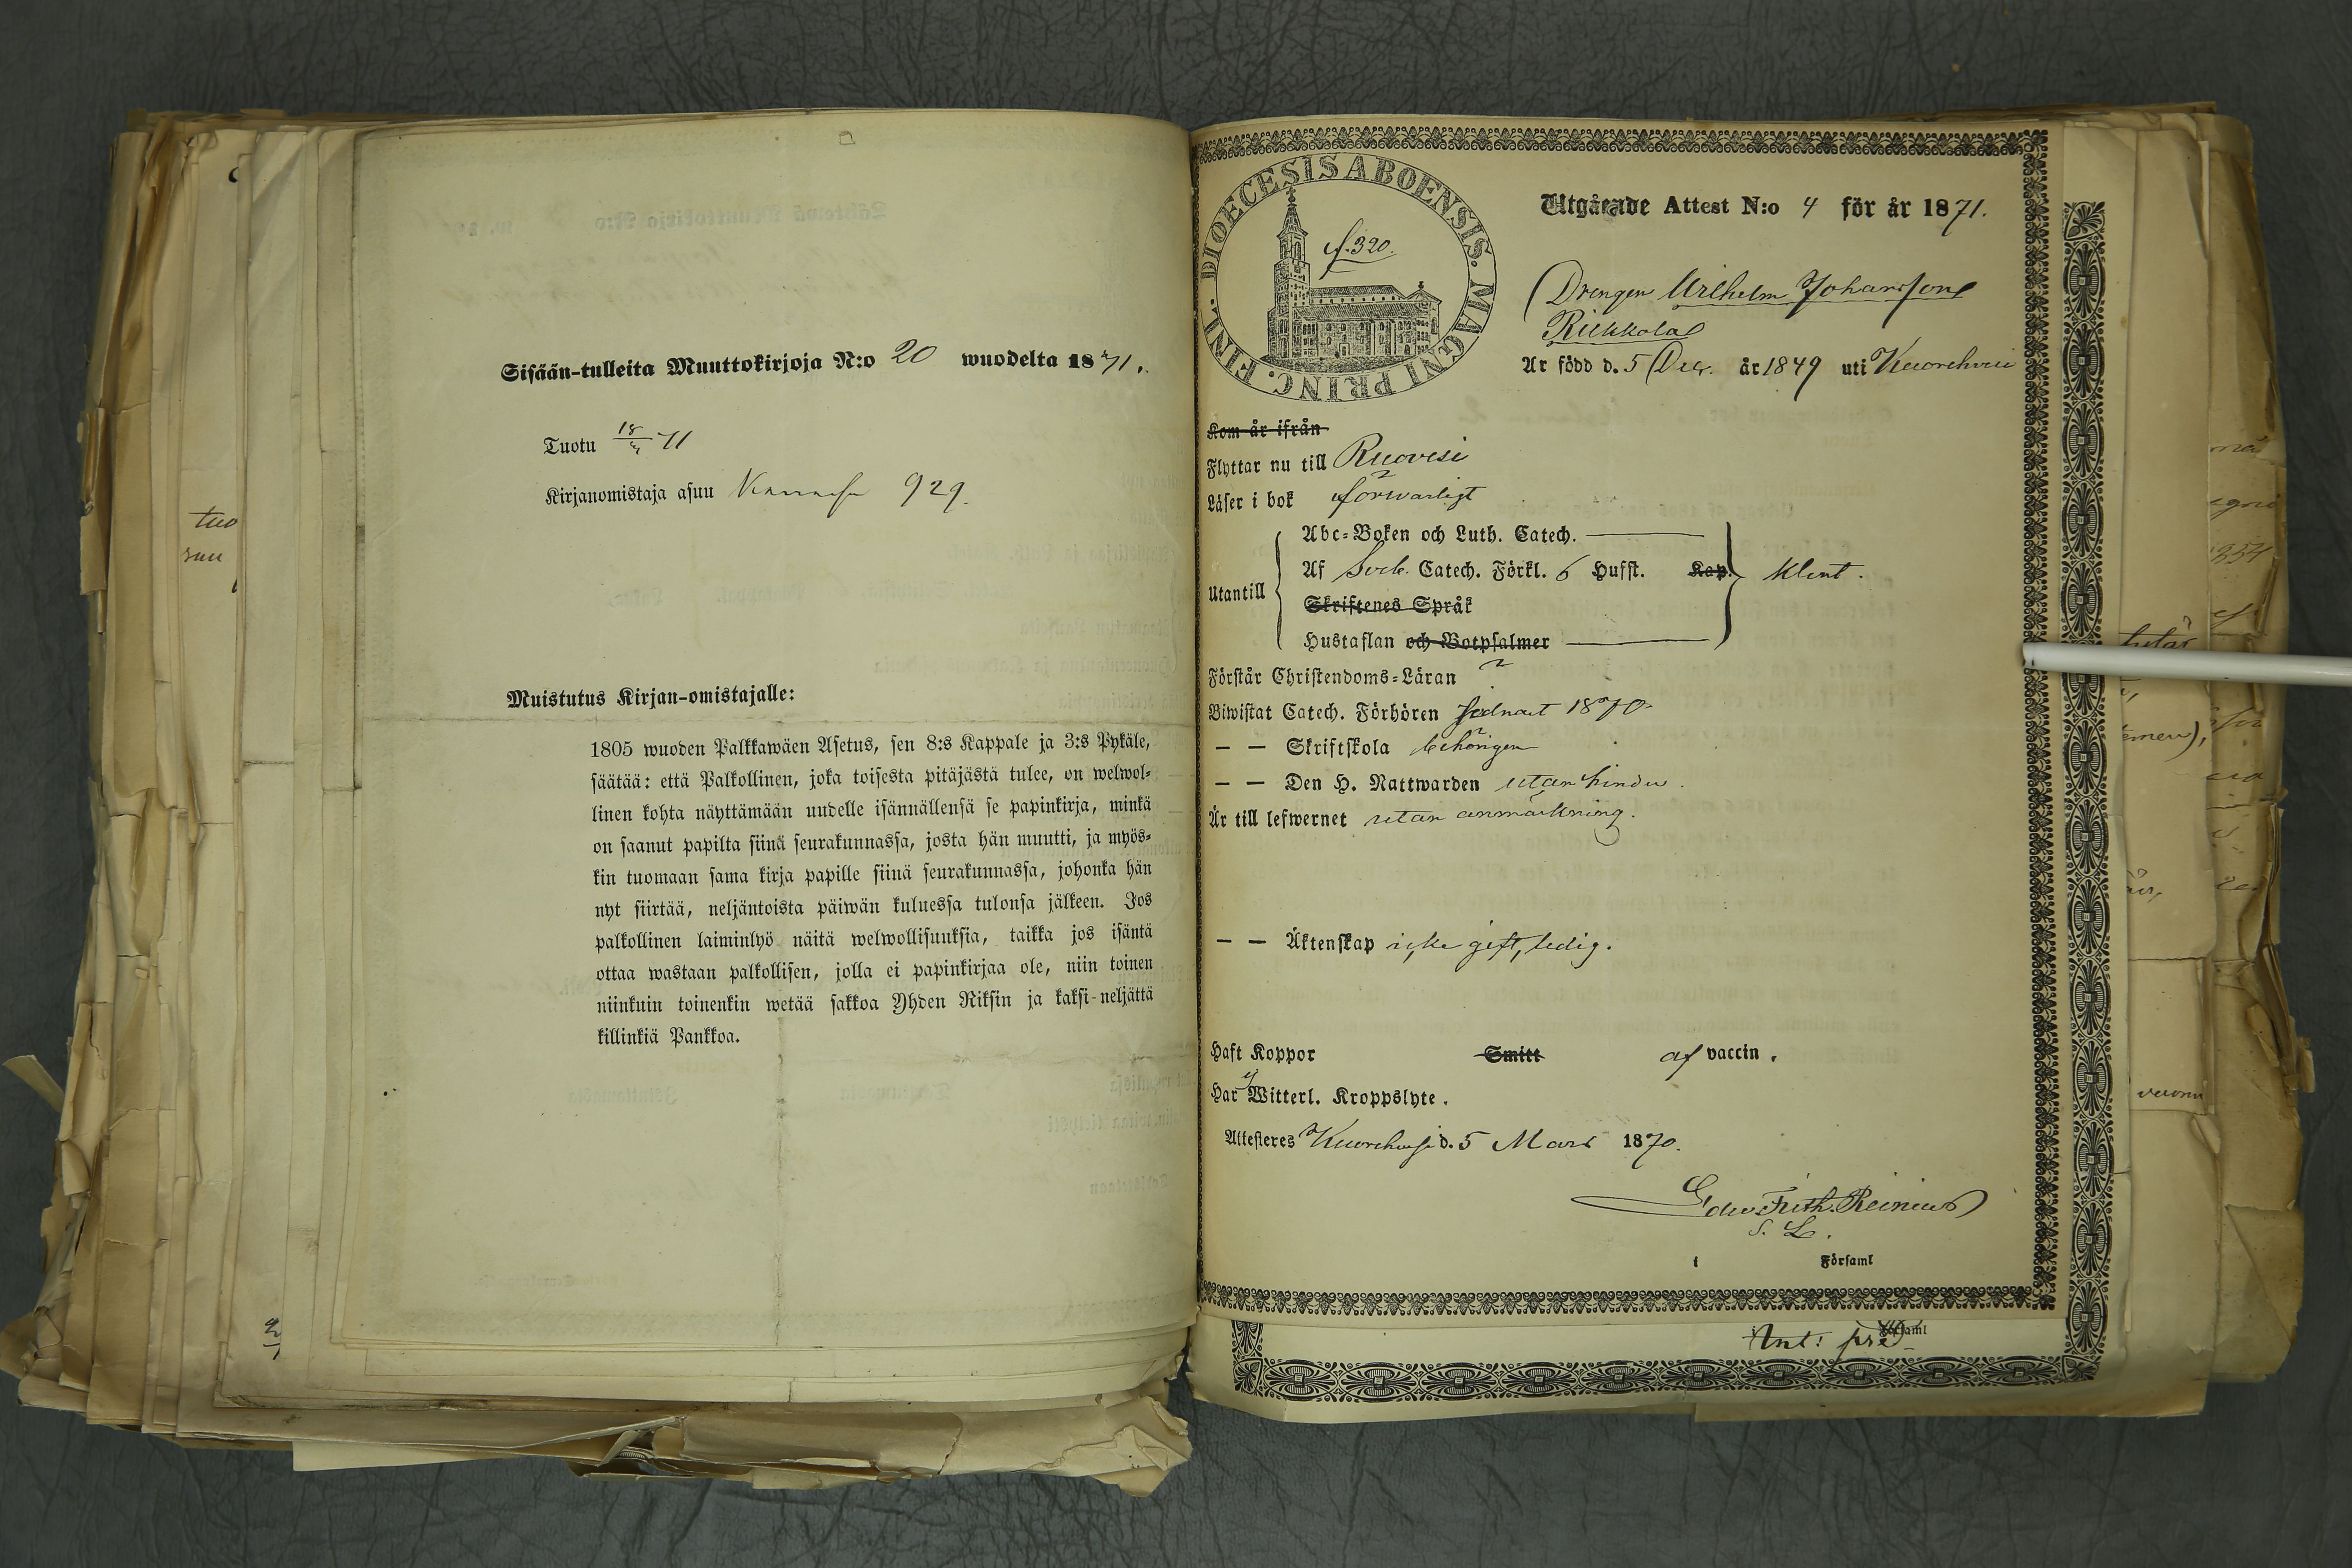 Sisään-tulleita Muuttokirjoja N:o 20 wuodelta 1871.
Tuotu 18/3 71
Kirjanomistaja asuu 929.
Muistutus Kirjan-omistajalle:
1805 wuoden Palkkawäen Asetus, sen 8:s Kappale ja 3:s Pykäle,
säätää: että Palkollinen, joka toisesta pitäjästä tulee, on welwol-
linen kohta näyttämään uudelle isännällensä se papinkirja, minkä
on saanut papilta siinä seurakunnassa, josta hän muutti, ja myös-
kin tuomaan sama kirja papille siinä seurakunnassa, johonka hän
nyt siirtää, neljäntoista päiwän kuluessa tulonsa jälkeen. Jos
palkollinen laiminlyö näitä welwollisuuksia, taikka jos isäntä
ottaa wastaan palkollisen, jolla ei papinkirjaa ole, niin toinen
niinkuin toinenkin wetää sakkoa Yhden Riksin ja kaksi-neljättä
killinkiä Pankkoa.
DIOECESIS ABOENSIS. MAGNI PRINC. FINL.
f. 320.
Utgående Attest N:o 4 för år 1871.
Drengen Wilhelm Johansson
Riekkola
Är född d. 5 Dec. år 1849 uti Kuorehvesi
Kom år ifrån
Flyttar nu till Ruovesi
Läser i bok försvarligt
Utantill
Abc-Boken och Luth. Catech.
Af Sveb. Catech. Förkl. 6 Hufst. Kap. klent.
Skriftenes Språk
Hustaflan och Botpsalmer
Förstår Christendoms-Läran
Biwistat Catech. Förhören sednast 1870
— — Skriftskola behörigen
— — Den H. Nattwarden utan hinder.
Är till lefwernet utan anmärkning.
— — Äktenskap icke gift, ledig.
Haft Koppor Smitt af vaccin.
Har ej Witterl. Kroppslyte.
Attesteres Kuorehvesi d. 5 Mars 1870.
Edw. Frith. Reinius
S. L.
i Församl
Ant: pre